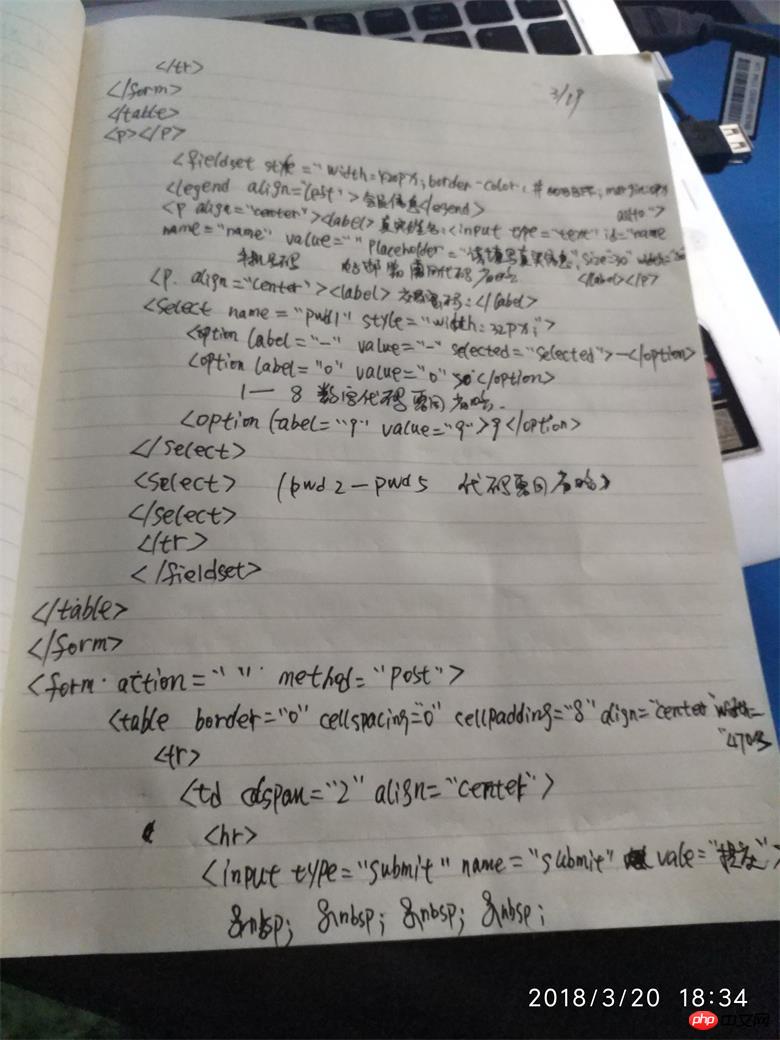 </tr>
3/19
</form>
</table>
<p></p>
<fieldset style="width=420px; border-color: # margin:0px
<legend align="left">会员信息</legend> auto">
<p align="center"><label>真实姓名:<input type="text" id="name
name="name" value="" placeholder="请填写真实信息", size="30"
手机号码 省略 <label></p>
<p. align="center"><label> </label>
<select name="pwd1" style="width:32px;">
<option label="-" value="-" selected="selected">-</option>
<option label="0" value="0" </option>
1— 8 数字代码 同 省略.
<option label="9" value="9">9</option>
</select>
<select> (pwd2—pwd5 代码 同省略)
</select>
</tr>
</fieldset>
</table>
</form>
<form action=" " method="post">
<table border="0" cellspacing="0" cellpadding="8" align="center" width=
"470
<tr>
<td colspan="2" align="center">
<hr>
<input type="submit" name="submit" vale="提交">
&nbsp; &nbsp; &nbsp; &nbsp;
2018/3/20 18:34
php 中文网